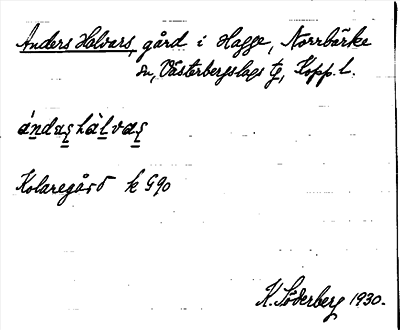 Anders Halvars, gård i Hagge, Norrbärke
sn, Västerbergslags tg, Kopp. l.
ándashàlvas
Kolaregård k G90
K. Söderberg 1930.